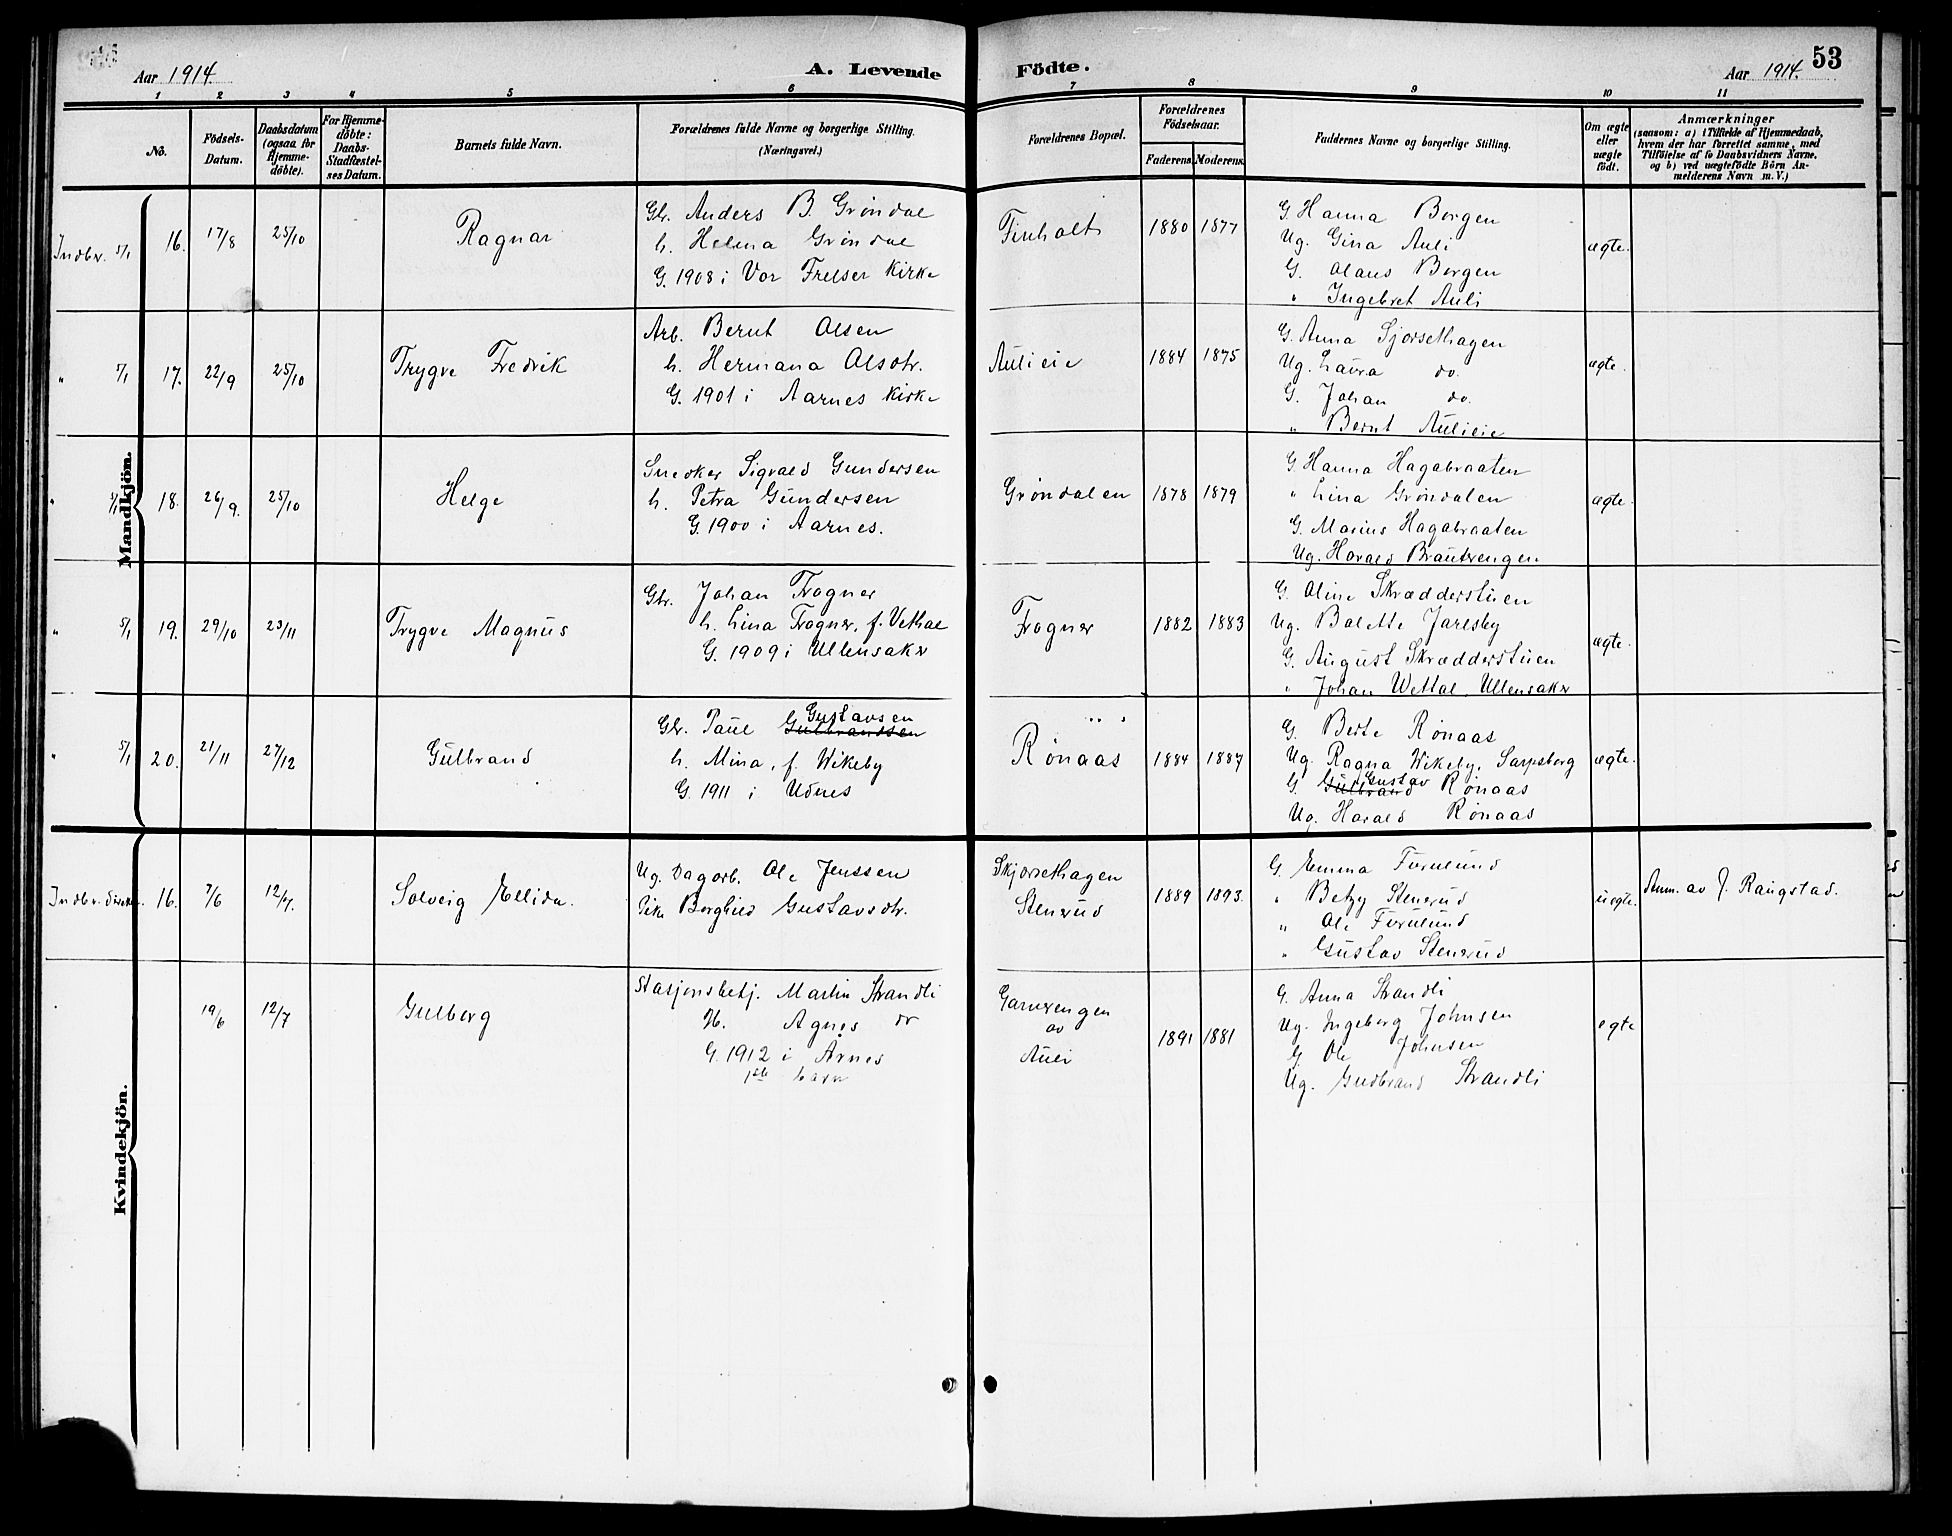 Aar 1914.
A. Levende
Födte.
Aar 1914.
53
1 2 3 4 5 6 7 8 9 10 11
No.
Födsels-
Datum.
Daabsdatum
(ogsaa for
Hjemme-
döbte).
For Hjemme-
döbte:
Daabs-
Stadfæstel-
ses Datum.
Barnets fulde Navn.
Forældrenes fulde Navne og borgerlige Stilling.
(Næringsvei.)
Forældrenes Bopæl.
Forældrenes
Födselsaar.
Faderens. Moderens.
Faddernes Navne og borgerlige Stilling.
Om ægte
eller
uægte
födt.
Anmærkninger
(saasom: a) i Tilfælde af Hjemmedaab,
hvem der har forrettet samme, med
Tilföielse af to Daabsvidners Navne.
og b) ved uægtefödte Börn An-
melderens Navn m. V.)
Mandkjön.
Indbr. 5/1 16. 17/8 25/10
Ragnar
Gbr. Anders B. Grøndal
h. Helma Grøndal
G. 1908 i Vor Frelser Kirke
Finholt
1880 1877
G. Hanna Borgen
Ug. Gina Auli
G. Olaus Borgen
" Ingebret Auli
ægte.
" 5/1 17. 22/9 25/10
Trygve Fredrik
Arb. Bernt Olsen
h. Hermana Olsdtr.
G. 1901 i Aarnes Kirke
Aulieie
1884 1875
G. Anna Sjorsethagen
Ug. Laura do.
G. Johan do.
" Bernt Aulieie
ægte.
" 5/1 18. 26/9. 25/10
Helge
Snedker Sigvald Gundersen
h. Petra Gundersen
G. 1900 i Aarnes.
Grøndalen
1878 1879
G. Hanna Hagabraaten
" Lina Grøndalen
G. Marius Hagabraaten
Ug. Harald Brautrengen
ægte.
" 5/1 19. 29/10 23/11
Trygve Magnus
Gbr. Johan Frogner
h. Lina Frogner, f. Vethal
G. 1909 i Ullensaker
Frogner
1882 1883
G. Oline Skrædderstuen
Ug. Balette Jaresby
G. August Skrædderstuen
" Johan Wettal, Ullensaker
ægte.
" 5/1 20. 21/11 27/12
Gulbrand
Gustavsen
Gbr. Paul Gulbrandsen
h. Mina, f. Wikeby
G. 1911 i Udnes
Rønaas
1884 1887
G. Berte Rønaas
Ug. Ragna Wikeby, Sarpsborg
Gustav
G. Gulbrand Rønaas
Ug. Harald Rønaas
ægte.
Kvindekjön.
Indbr. direkte. 16. 7/6 12/7.
Solveig Ellida.
Ug. Dagarb. Ole Jenssen
Pike Borghild Gustavsdtr.
Skjorsethagen
Stenrud
1889 1893.
G. Emma Furulund
" Betzy Stenrud
" Ole Furulund
" Gustav Stenrud
uægte.
Anm. av J. Rangstad.
19/6 12/7
Gulborg
Stasjonsbetj. Martin Strandli
H. Agnes do
G. 1912 i Årnes
1ste barn
Garnrengen
av
Auli
1891 1881
G. Anna Strandli
Ug. Ingeborg Johnsen
G. Ole Johnsen
Ug. Gudbrand Strandli
egte